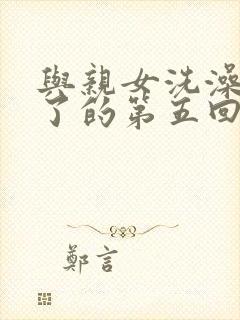 與親女洗澡
了的第五回
鄭言